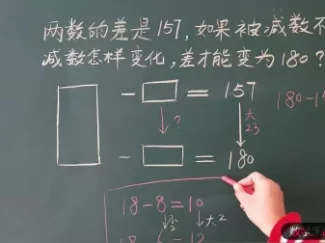 两数的差是157,如果被减数不
减数怎样变化,差才能变为180?
- = 157
180-1
? 大
23
- = 180
18-8=10
大2